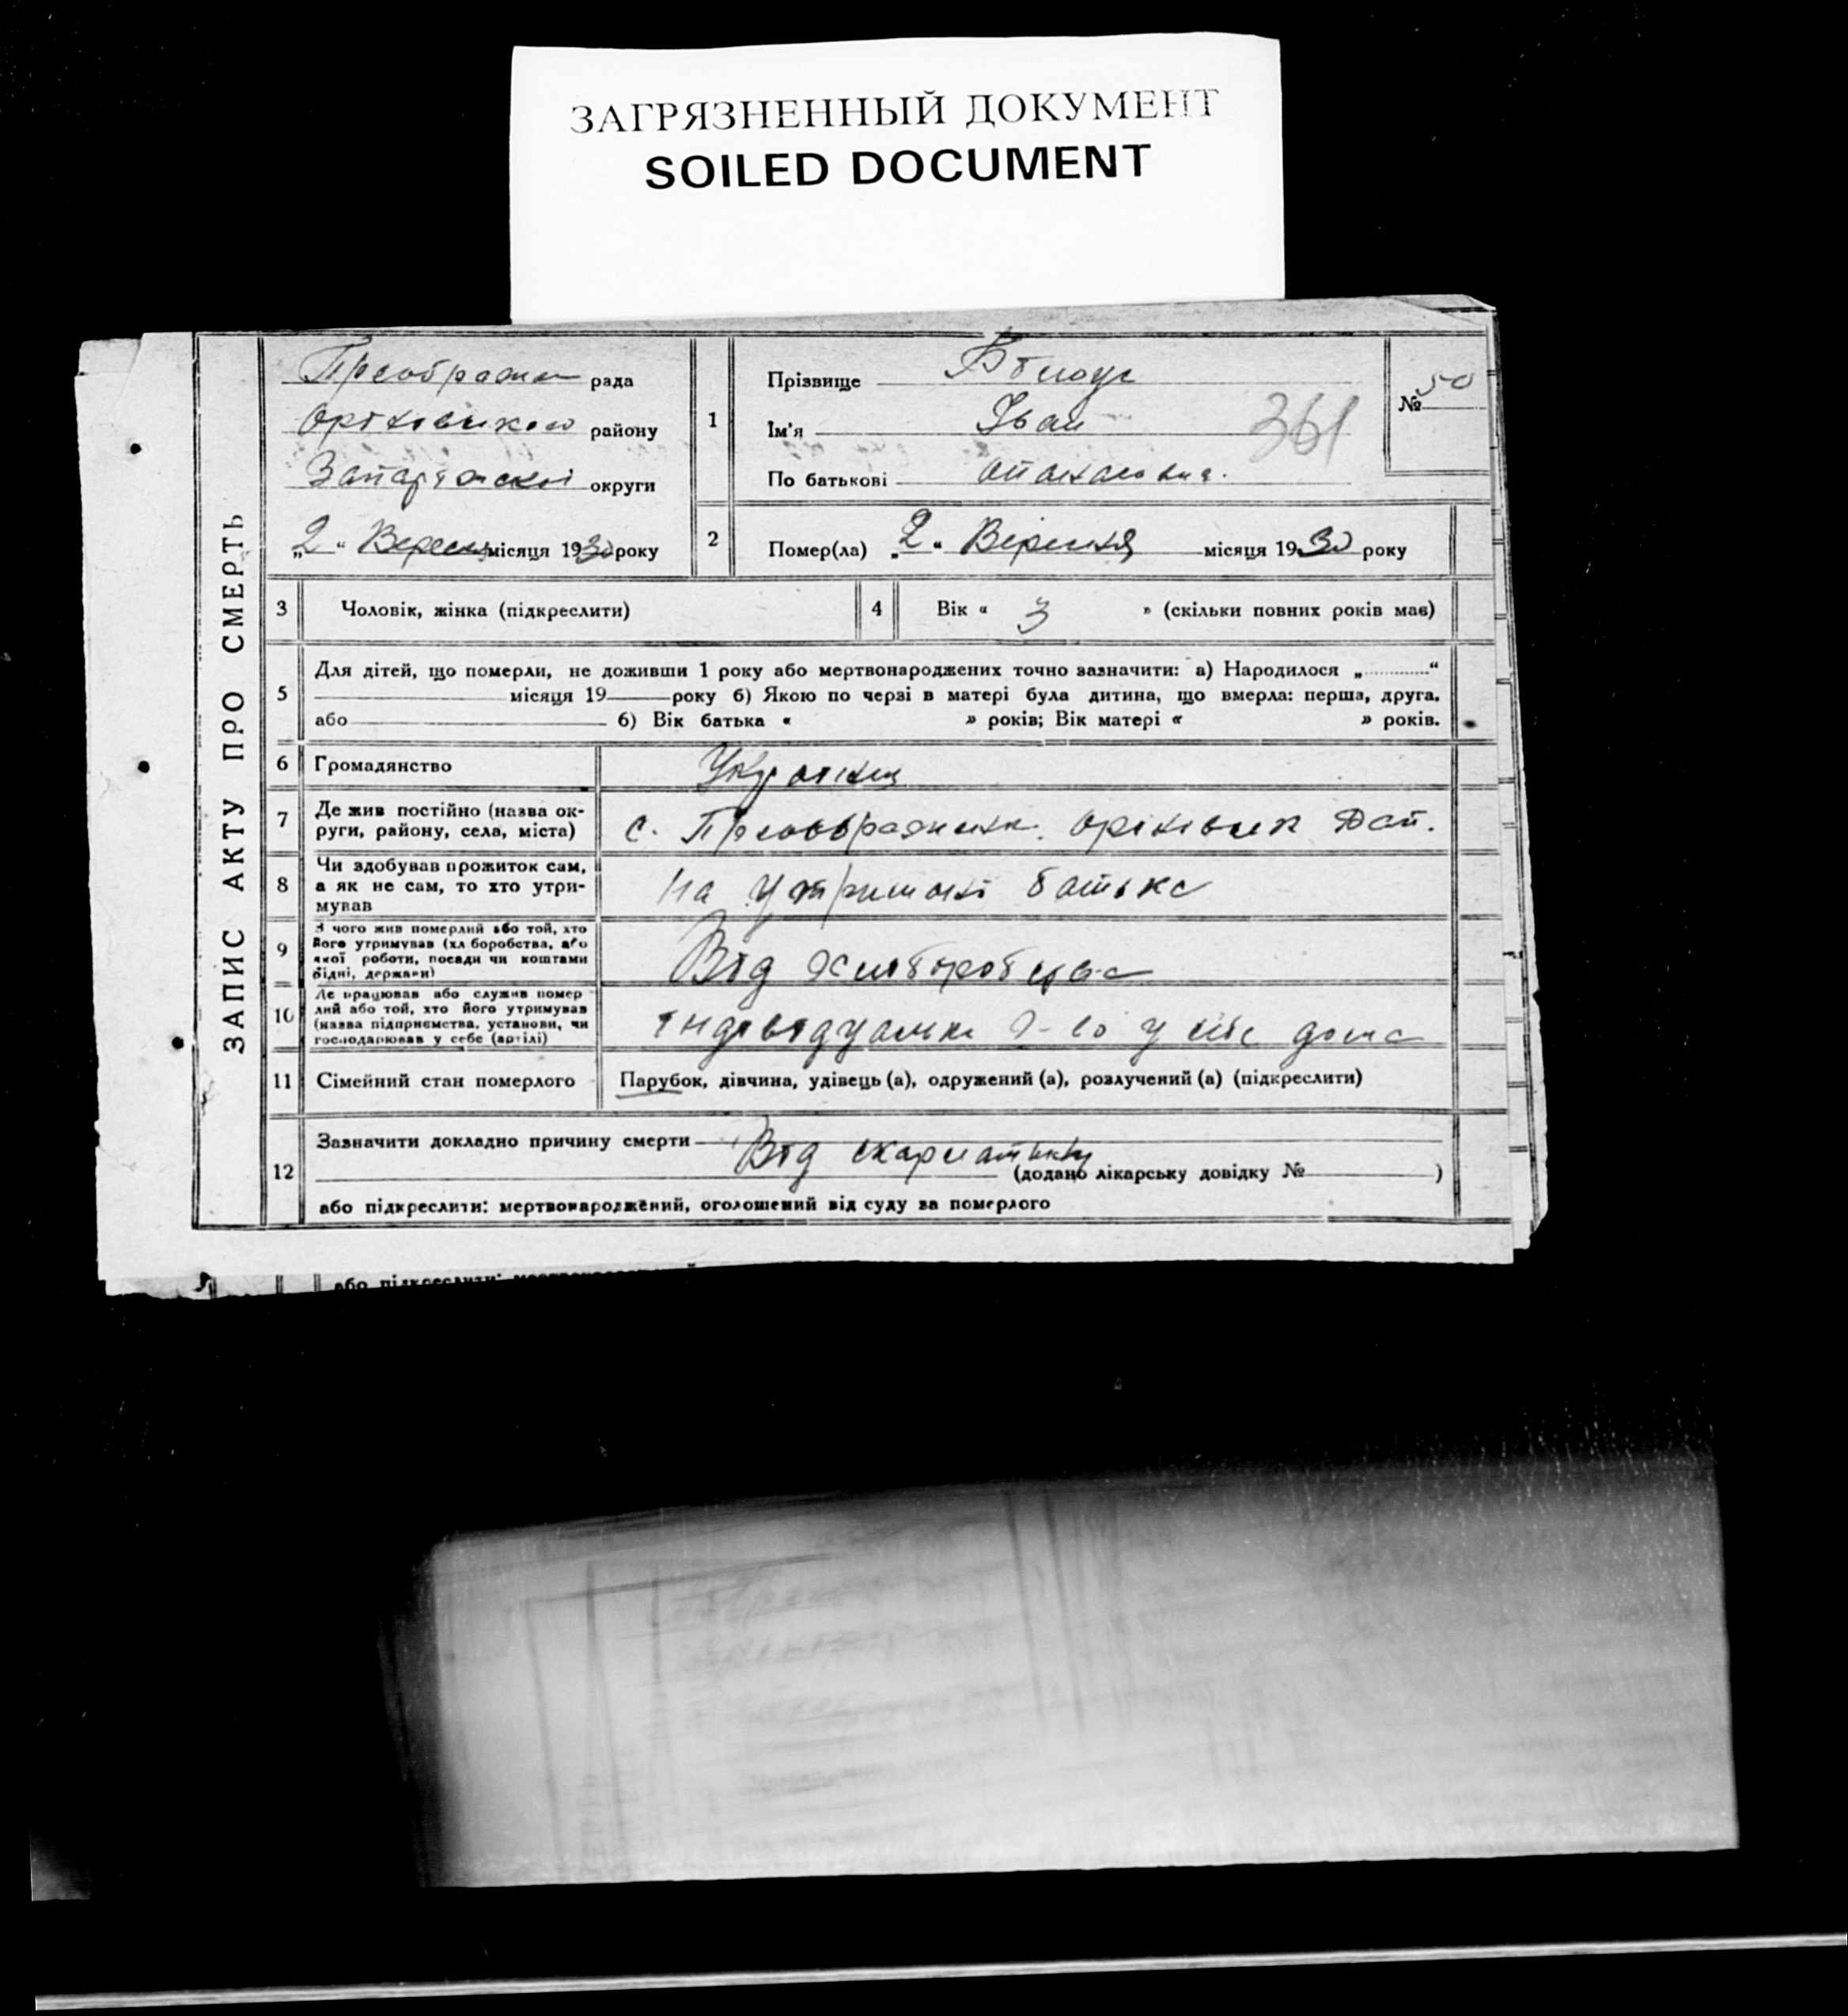 ЗАГРЯЗНЕННЫЙ ДОКУМЕНТ
SOILED DOCUMENT
ЗАПИС АКТУ ПРО СМЕРТЬ
рада
району
округи
„2“ Вересн місяця 1930 року
1
Прізвище Білоус
Ім'я Іван
361
По батькові
№ 50
2
Помер(ла) „2“ місяця 1930 року
3 Чоловік, жінка (підкреслити)
4 Вік « 3 » (скільки повних років має)
5 Для дітей, що померли, не доживши 1 року або мертвонароджених точно зазначити: а) Народилося „ “
місяця 19 року б) Якою по черзі в матері була дитина, що вмерла: перша, друга,
або б) Вік батька « » років; Вік матері « » років.
6 Громадянство
7 Де жив постійно (назва ок-
руги, району, села, міста)
с.
8 Чи здобував прожиток сам,
а як не сам, то хто утри-
мував
На утримані батька
9 З чого жив померлий або той, хто
його утримував (хл боробства, або
якої роботи, посади чи коштами
рідні, держави)
Від хліборобства
10 Де працював або служив помер
лий або той, хто його утримував
(назва підприємства, установи, чи
господарював у себе (артілі)
у себе дома
11 Сімейний стан померлого Парубок, дівчина, удівець (а), одружений (а), розлучений (а) (підкреслити)
12 Зазначити докладно причину смерти Від скарлатини
(додано лікарську довідку № )
або підкреслити: мертвонароджений, оголошений від суду за померлого
або підкреслити: